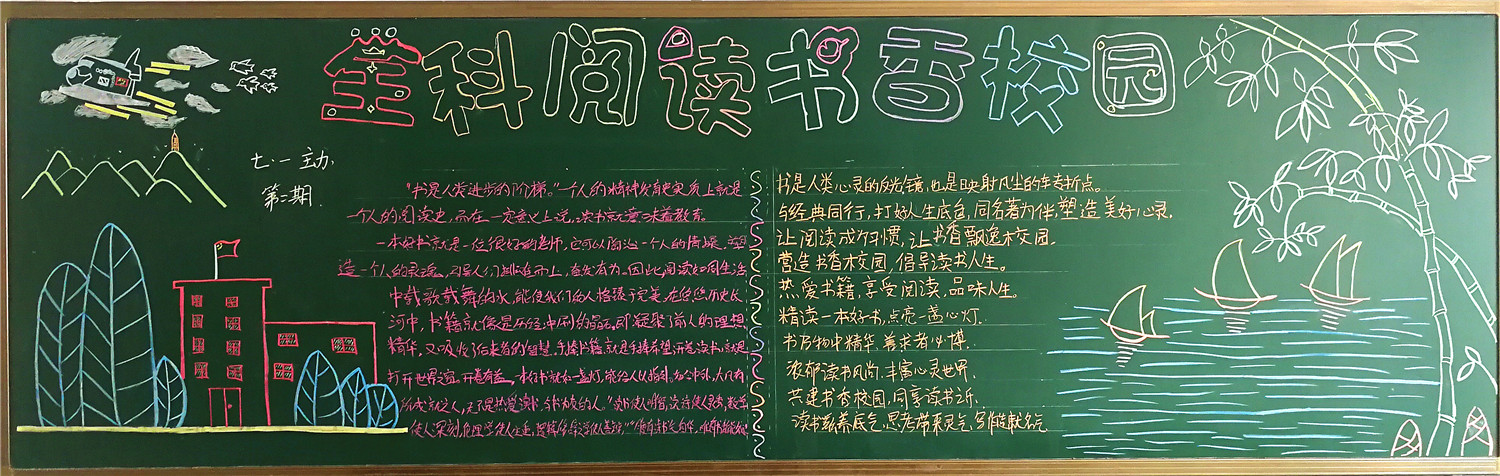 全科阅读书香校园
七·一主办
第二期
"书是人类进步的阶梯。"一个人的精神发育史实质上就是
一个人的阅读史,而在一定意义上说,读书就意味着教育。
一本好书就是一位很好的老师,它可以陶冶一个人的情操,塑
造一个人的灵魂,引导人们积极向上,奋发有为。因此,阅读如同生活
中载歌载舞的水,能使我们的人格臻于完美。在悠悠历史长
河中,书籍就像是历经冲刷的晶石,即凝聚了前人的理想
精华,又吸收了后来者的智慧。手捧书籍就是手捧希望,开卷读书就是
打开世界窗。开卷有益。一本好书就如一盏灯,能给人以指引。古今中外,大凡有
所成就之人,无不是热爱读书
书是人类心灵的反光镜,也是映射风尘的车转折点。
与经典同行,打好人生底色,同名著为伴,塑造美好心录。
让阅读成为习惯,让书香飘逸校园。
营造书香校园,倡导读书人生。
热爱书籍,享受阅读,品味人生。
精读一本好书,点亮一盏心灯.
书乃物中精华,善求者必博.
浓郁读书风尚,丰富心灵世界.
共建书香校园,同享读书之乐.
读书滋养底气,思考带来灵气,写作造就名气